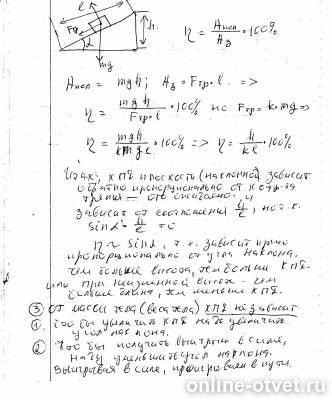 ℓ
Fтр
h
α
mg
η = Aпол / Aз · 100%
Aпол = mgh; Aз = Fтр·ℓ =>
η = mgh / Fтр·ℓ · 100% но Fтр = k·mg =>
η = mgh / kmgℓ · 100% => η = h / kℓ · 100%
Итак, КПД плоскости (наклонной) зависит
обратно пропорционально от
трения — это
Зависит от соотношения h/ℓ, но т.к.
Sinα = h/ℓ то
η ~ Sinα, т.к. зависит прямо
пропорционально от угла наклона.
Чем больше высота, тем больше КПД
или при неизменной высоте - чем
больше длина, тем меньше КПД.
③ от массы тела (веса тела) КПД не зависит
① Что бы увеличить КПД надо увеличить
угол наклона.
② Что бы получить выигрыш в силе,
надо уменьшить угол наклона.
Выигрывая в силе, проигрываем в пути.
online-otvet.ru